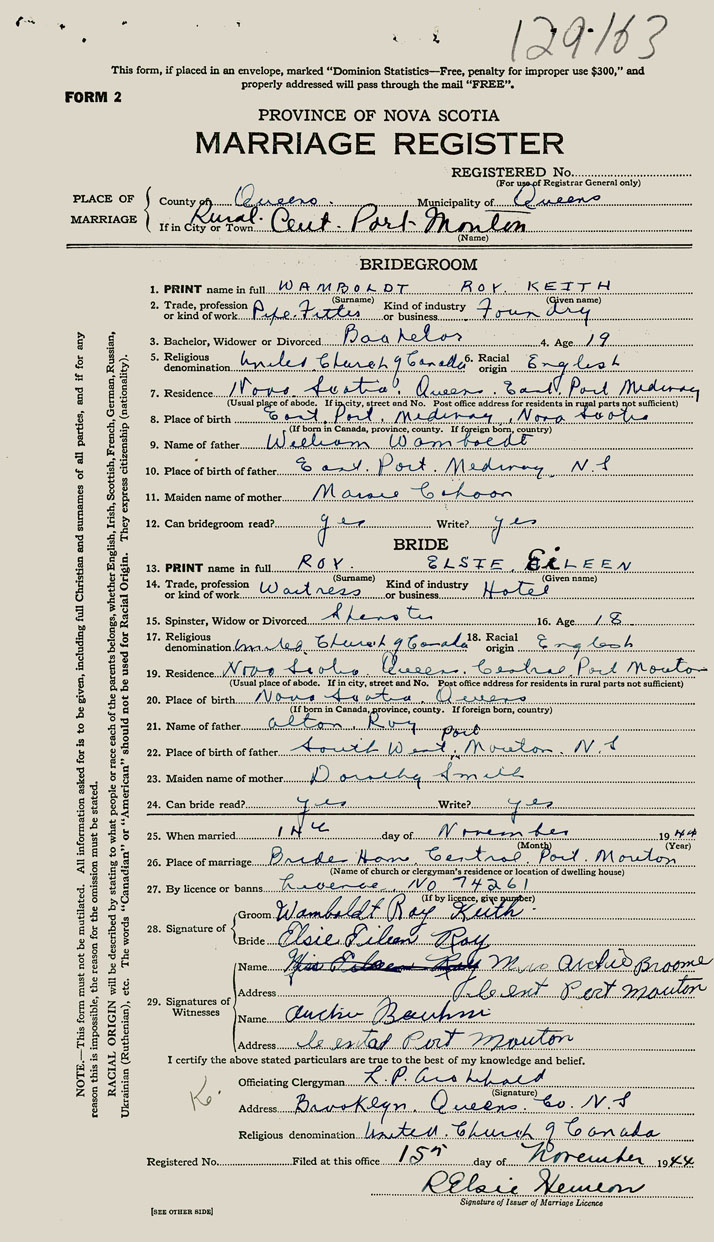 129-163
This form, if placed in an envelope, marked “Dominion Statistics—Free, penalty for improper use $300,” and
properly addressed will pass through the mail “FREE”.
FORM 2
PROVINCE OF NOVA SCOTIA
MARRIAGE REGISTER
REGISTERED No.
(For use of Registrar General only)
PLACE OF MARRIAGE
County of Queens. Municipality of Queens
If in City or Town Rural. Cent. Port Mouton
(Name)
BRIDEGROOM
1. PRINT name in full WAMBOLDT ROY. KEITH
(Surname) (Given name)
2. Trade, profession or kind of work Pipe. Fitter Kind of industry or business Foundry
3. Bachelor, Widower or Divorced Bachelor 4. Age 19
5. Religious denomination United Church of Canada 6. Racial origin English
7. Residence Nova Scotia, Queens. East Port Medway
(Usual place of abode. If in city, street and No. Post office address for residents in rural parts not sufficient)
8. Place of birth East Port. Medway, Nova Scotia
(If born in Canada, province, county. If foreign born, country)
9. Name of father William Wamboldt
10. Place of birth of father East. Port. Medway N.S
11. Maiden name of mother Cohoon
12. Can bridegroom read? yes Write? yes
BRIDE
13. PRINT name in full ROY. ELSIE EILEEN
(Surname) (Given name)
14. Trade, profession or kind of work Waitress Kind of industry or business Hotel
15. Spinster, Widow or Divorced Spinster 16. Age 18
17. Religious denomination United Church of Canada 18. Racial origin English
19. Residence Nova Scotia Queens. Central Port Mouton
(Usual place of abode. If in city, street and No. Post office address for residents in rural parts not sufficient)
20. Place of birth Nova Scotia, Queens
(If born in Canada, province, county. If foreign born, country)
21. Name of father Alton Roy
22. Place of birth of father South West. Port Mouton. N.S
23. Maiden name of mother Dorothy Smith
24. Can bride read? yes Write? yes
25. When married 14th day of November 1944
(Month) (Year)
26. Place of marriage Brides Home Central. Port. Mouton
(Name of church or clergyman's residence or location of dwelling house)
27. By licence or banns Licence. No 74261
(If by licence, give number)
28. Signature of
Groom Wamboldt Roy Keith.
Bride Elsie Eileen Roy
29. Signatures of Witnesses
Name Mrs Archie Broome
Address Cent Port Mouton
Name Archie
Address Central Port Mouton
I certify the above stated particulars are true to the best of my knowledge and belief.
Officiating Clergyman L. P. Archibald
(Signature)
Address Brooklyn. Queens. Co. N.S
Religious denomination United. Church of Canada
Registered No. Filed at this office 15th day of November 1944
R Elsie Hemeon
Signature of Issuer of Marriage Licence
[SEE OTHER SIDE]
NOTE.—This form must not be mutilated. All information asked for is to be given, including full Christian and surnames of all parties, and if for any
reason this is impossible, the reason for the omission must be stated.
RACIAL ORIGIN will be described by stating to what people or race each of the parents belongs, whether English, Irish, Scottish, French, German, Russian,
Ukrainian (Ruthenian), etc. The words “Canadian” or “American” should not be used for Racial Origin. They express citizenship (nationality).